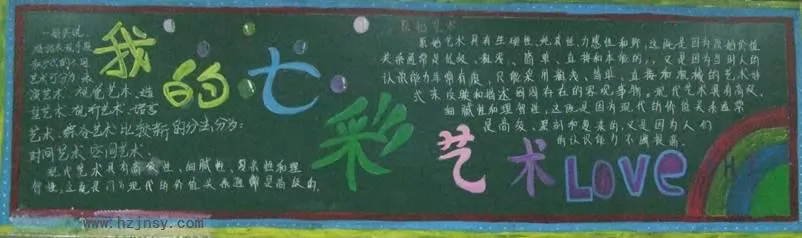 我的七彩艺术LOVE
一般来说，
根据表现手段
和方式的不同
艺术可分为：表
演艺术、视觉艺术、造
型艺术、视听艺术、语言
艺术、综合艺术比较新的分法，分为：
时间艺术 空间艺术、
现代艺术具有高级性、细腻性、复杂性和理
智性，这是
现代的价值关系通常是高级的、
原始艺术
原始艺术具有生理性、
这既是因为原始价值
关系通常是低级、粗浅、简单、直接和本能的，又是因为当时人的
认识能力非常有限，只能采用粗浅、简单、直接和
的艺术形
式来反映和描述周围存在的客观事物。现代艺术具有高级、
细腻性和理智性，这既是因为现代的价值关系通常
是高级、
和复杂的，又是因为人们
的认识能力不断提高．
www.hzjnsy.com